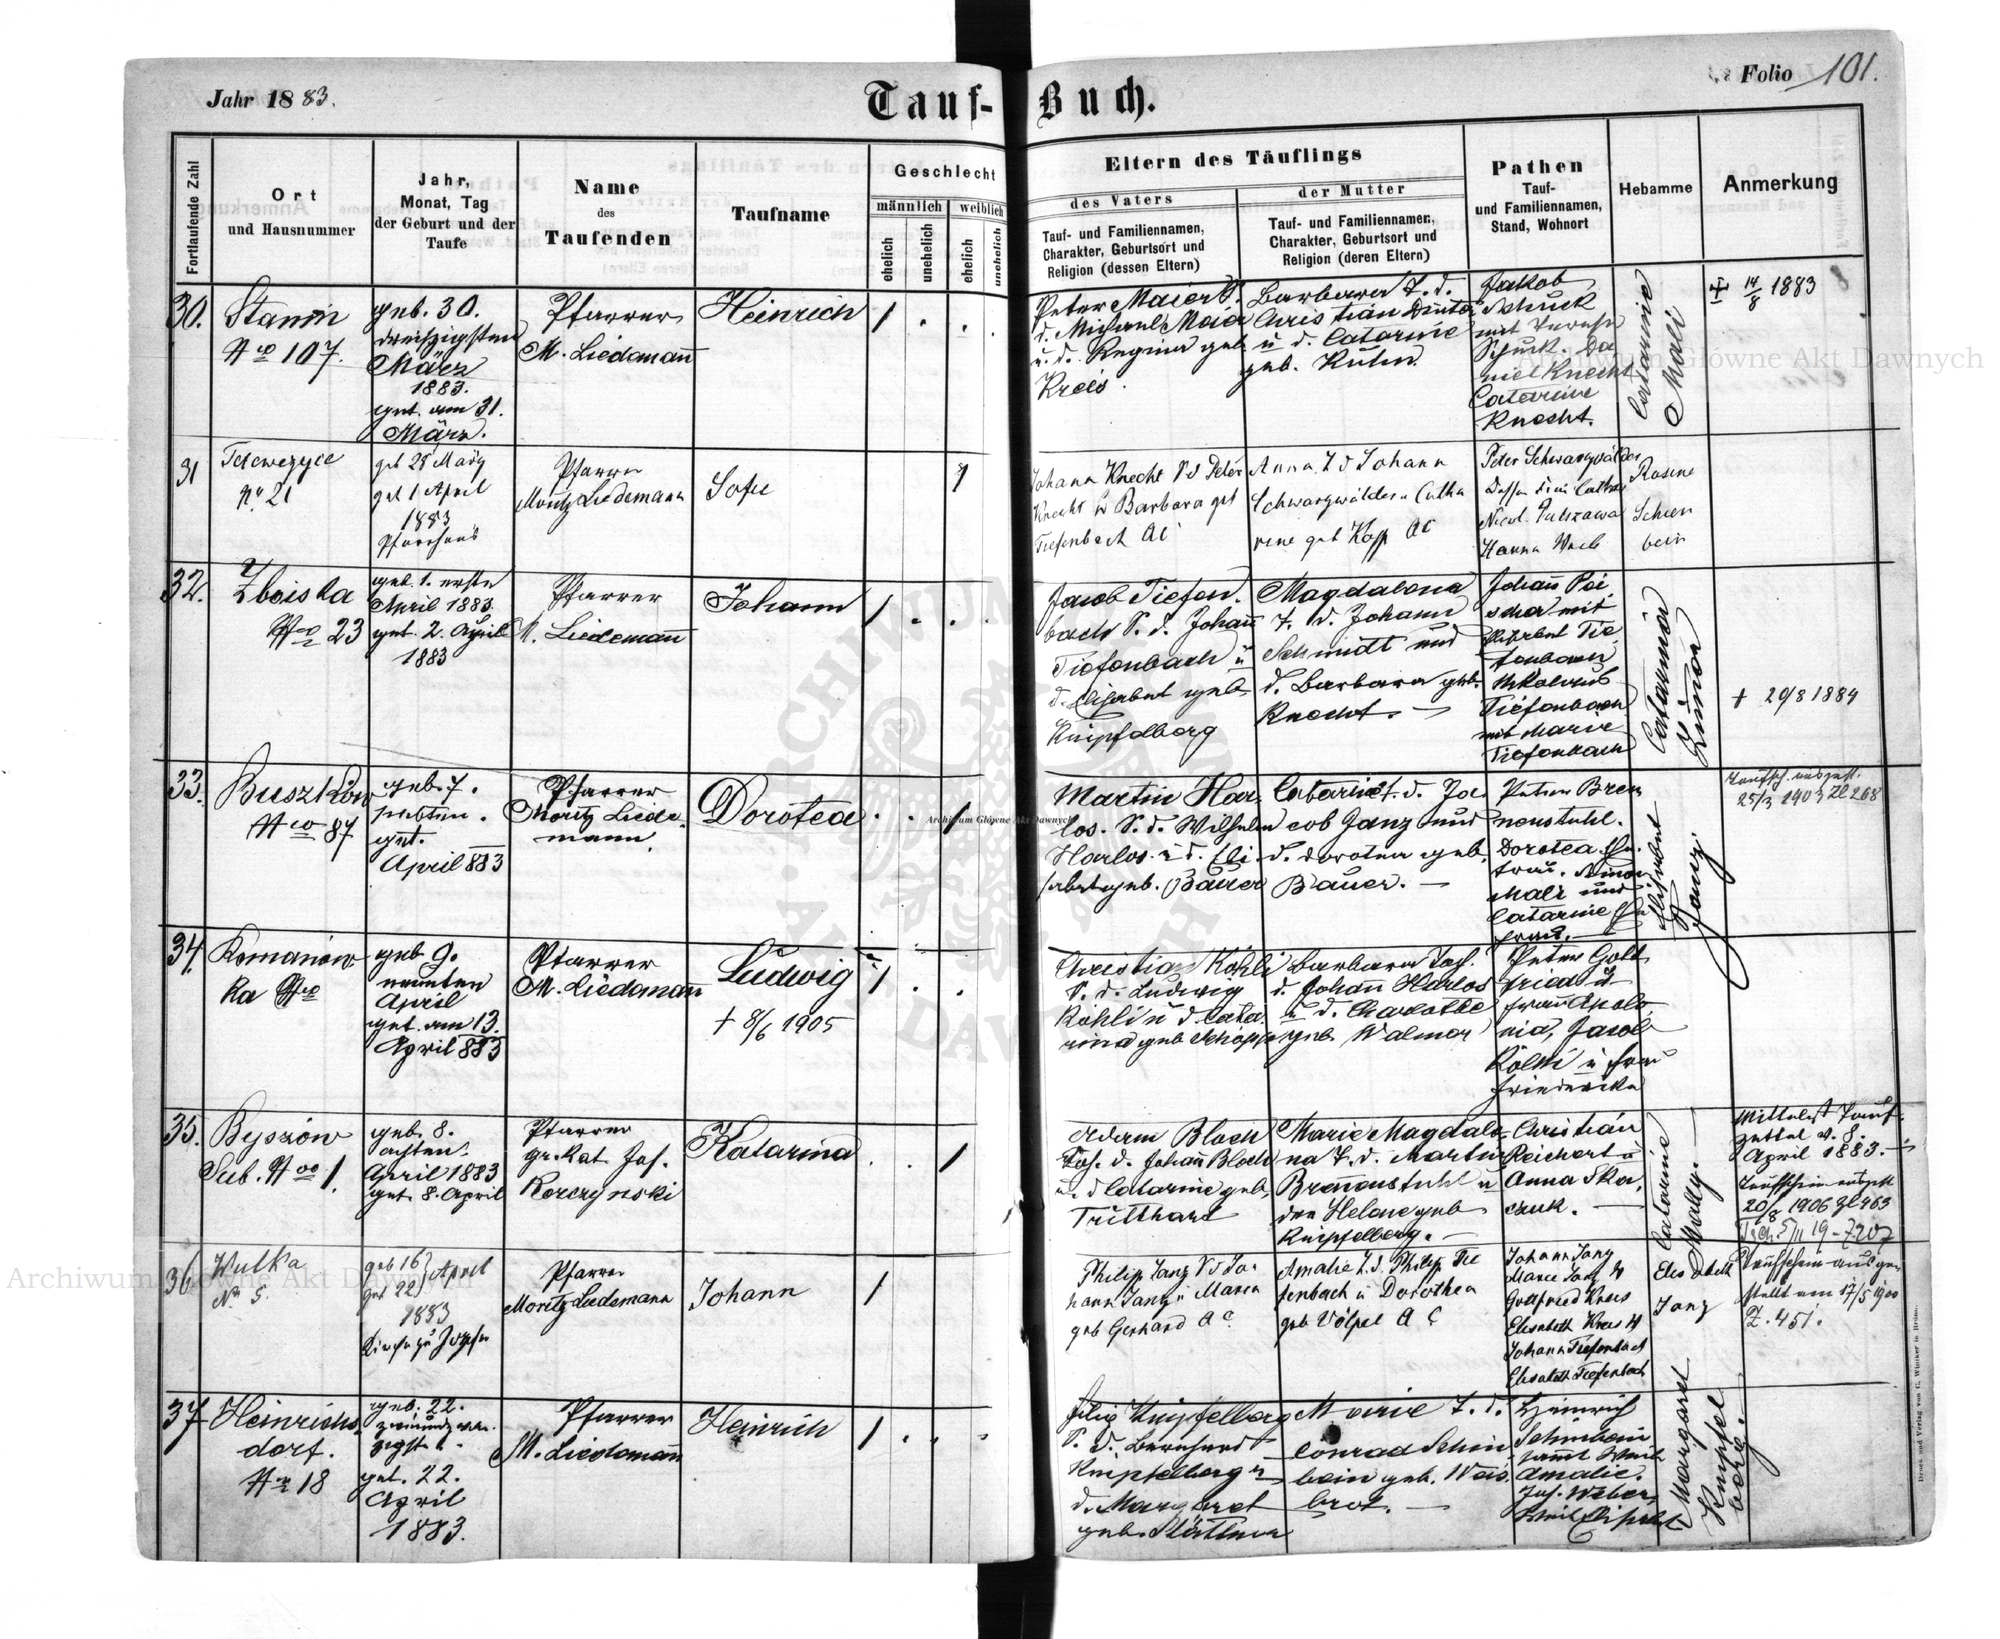 Jahr 1883.
Tauf-Buch.
Folio 101.
Fortlaufende Zahl
Ort
und Hausnummer
Jahr,
Monat, Tag
der Geburt und der
Taufe
Name
des
Taufenden
Taufname
Geschlecht
männlich
weiblich
ehelich
unehelich
ehelich
unehelich
Eltern des Täuflings
des Vaters
Tauf- und Familiennamen,
Charakter, Geburtsort und
Religion (dessen Eltern)
der Mutter
Tauf- und Familiennamen,
Charakter, Geburtsort und
Religion (deren Eltern)
Pathen
Tauf-
und Familiennamen,
Stand, Wohnort
Hebamme
Anmerkung
30.
Stanin
Nro 107.
geb. 30.
dreißigsten
März
1883.
get. am 31.
März.
Pfarrer
M. Liedemann
Heinrich
Peter Maier S.
d. Michael Maier
u. d. Regina geb
Kreis.
Barbara T. d.
Christian
u d. Catarine
geb. Kuhn.
Jakob
Schuck
mit
Schuck. Da
niel Knecht
Catarine
Knecht.
Catarine
Mali
14/8 1883
31
No 21
geb 28 März
get 1 April
1883
Pfarrhaus
Pfarrer
Moritz Liedemann
Sofie
Johann Knecht S d Peter
Knecht u Barbara geb
Tiefenbach AC
Anna T d Johann
Schwarzwälder u Catha
rine geb Kopp AC
Peter Schwarzwälder
dessen Frau Cathar
Nicol.
Hanna
Rosine
Schien
bein
32.
Zboiska
Nro 23
geb. 1. erste
April 1883.
get. 2. April
1883
Pfarrer
M. Liedemann
Johann
Jacob Tiefen.
bach S. d. Johann
Tiefenbach u
d. Elisabet geb
Knipfelberg
Magdalena
T. d. Johann
Schmidt und
d. Barbara geb.
Knecht. —
Johann
mit
Elisabet Tie
fenbach
Nikolaus
Tiefenbach
mit Marie
Tiefenbach
Catarina
† 29/8 1884
33.
Buszków
Nro 87
geb. 7.
siebten.
get.
April 883
Pfarrer
Moritz Liede.
mann.
Dorotea
Martin Har.
los. S. d. Wilhelm
Harlos. u d. Eli.
sabet geb. Bauer
Catarine T. d. Ja
cob Janz und
d. Dorotea geb.
Bauer. —
Peter Bren
nenstuhl.
Dorotea
Mali und
Catarine
frau.
Elisabet
Janz.
Taufsch. ausgest.
25/3 1903 Zl 268
34.
Romanów
ka Nro
geb 9.
neunten
April
get. am 13.
April 883
Pfarrer
M. Liedemann
Ludwig
† 8/6 1905
Christian Köhli
S. d. Ludwig
Köhli u d. Cata.
rina geb Schöpp
Barbara Toch.
d. Johann Harlos
u d. Charlotte
geb Walmer
Peter Gott
fried u
frau Apolo
nia, Jacob
Köhli u frau
Friedericka
35.
Byszów
Sub. Nro 1.
geb. 8.
achten.
April 1883
get. 8. April
Pfarrer
gr. Kat. Jos.
Korczynski
Katarina
Adam Bloch
Soh. d. Johann Bloch
u. d Catarine geb.
Tritthard
Marie Magdale
na T. d. Martin
Brennenstuhl u
der Helene geb
Knipfelberg. —
Christian
Reichert u
Anna Ska.
czuk. —
Catarine
Mally. —
Mittelst Tauf.
zettel v. 8.
April 1883. —
Taufschein ausgest
20/8 1906 Zl 463
36
Wulka
No 5.
geb 16
get 22
April
1883
Kirche zu Josefów
Pfarrer
Moritz Liedemann
Johann
Philip Janz S d Jo
hann Janz u Maria
geb Gerhard AC
Amalie T. d. Philip Tie
fenbach u Dorothea
geb Völpel AC
Johann Janz
Marie Janz
Gottfried Kreis
Elisabeth Kreis
Johann Tiefenbach
Elisabeth Tiefenbach
Elisabeth
Janz
Taufschein ausge
stellt am 17/5 1900
Z. 451.
37
Heinrichs.
dorf.
Nro 18
geb. 22.
zweiundzwan.
zigst.
get. 22.
April
1883.
Pfarrer
M. Liedemann
Heinrich
Filip Knipfelberg
S. d. Bernhard
Knipfelberg u
d. Margaret
geb.
Marie T. d.
Conrad Schin
bein geb. Weis
brot. —
Heinrich
Schinbein
sammt Weib
Amalie.
Joh. Weber,
Margaret
Knipfel
berg.
Druck und Verlag von C. Winiker in Brünn.
Archiwum Główne Akt Dawnych
Archiwum Główne Akt Dawnych
Archiwum Główne Akt Dawnych